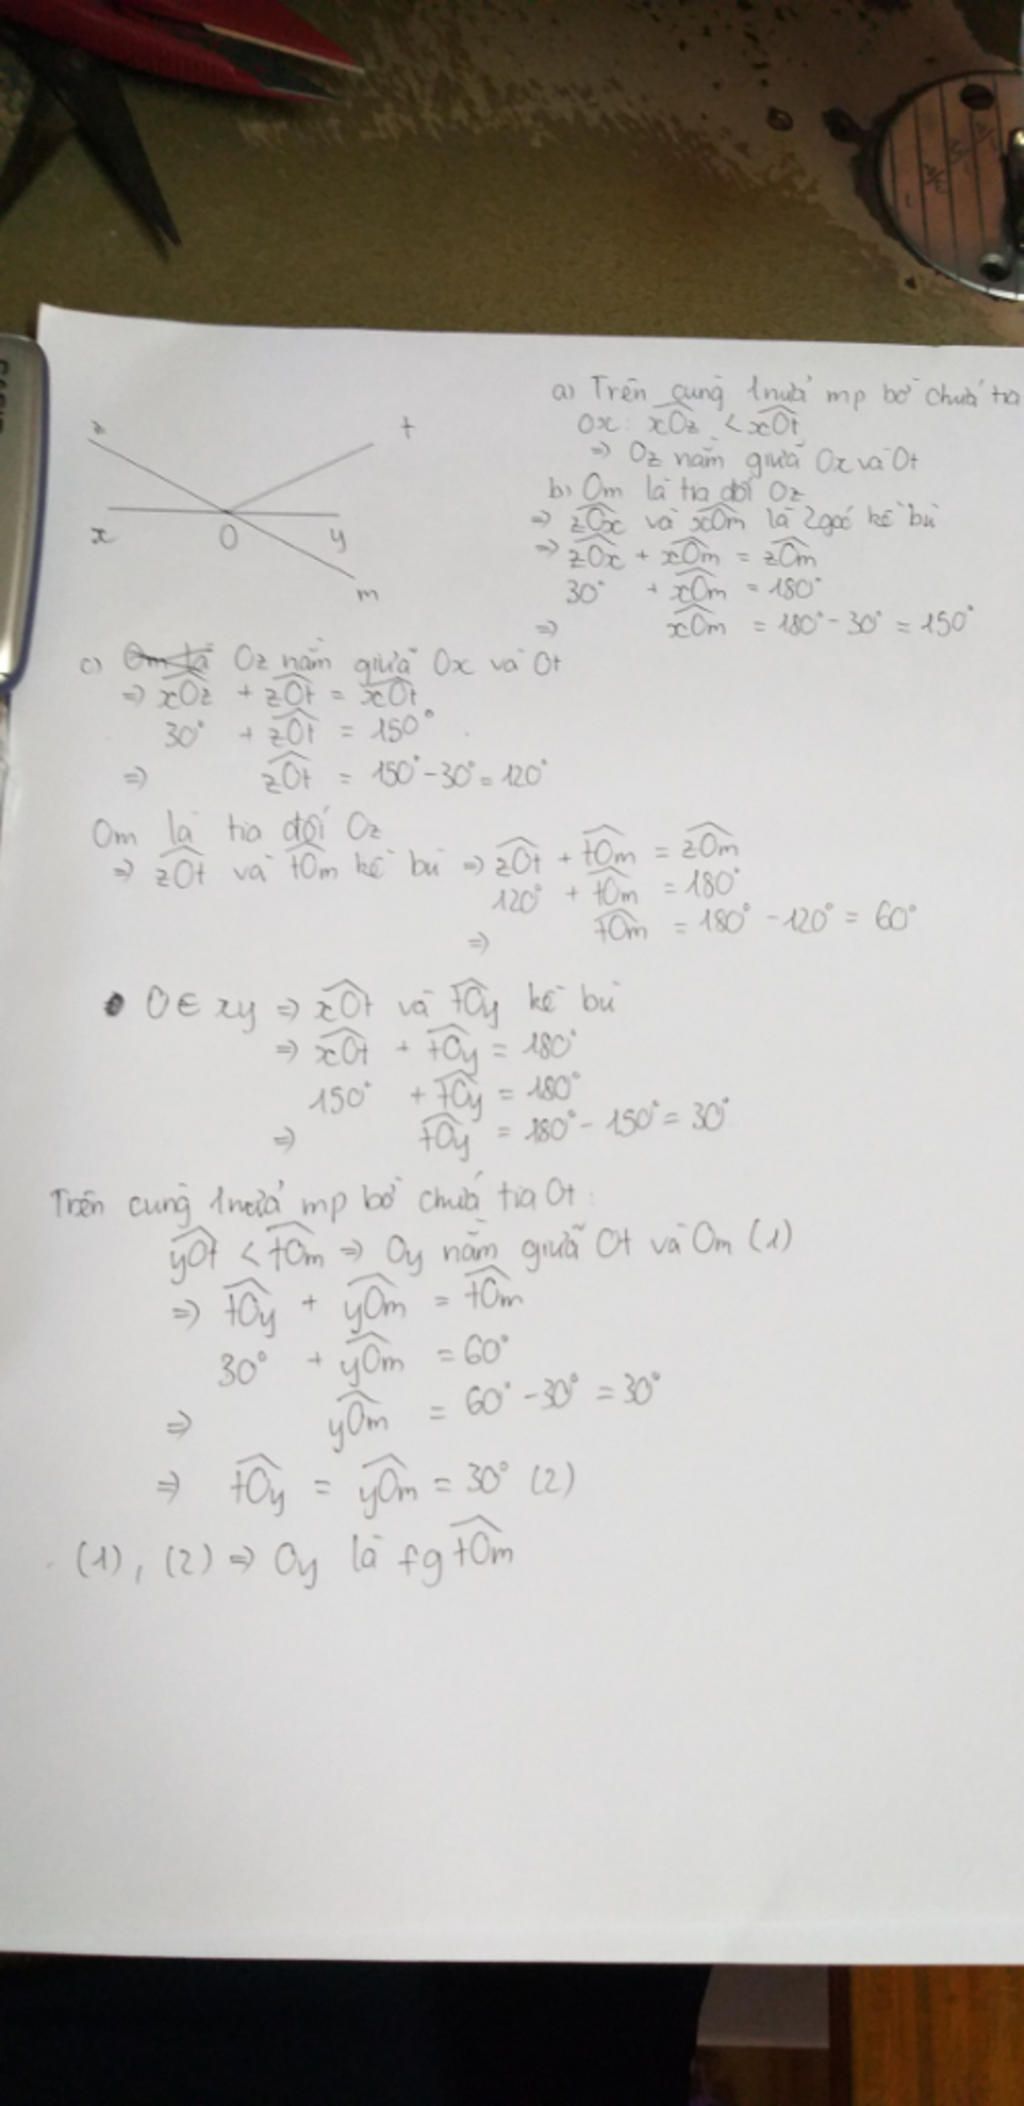 z
t
x
O
y
m
a) Trên cùng 1 nửa mp bờ chứa tia
Ox: xÔz < xÔt
=> Oz nằm giữa Ox và Ot
b) Om là tia đối Oz
=> zÔx và xÔm là 2 góc kề bù
=> zÔx + xÔm = zÔm
30° + xÔm = 180°
=> xÔm = 180° - 30° = 150°
c) Oz nằm giữa Ox và Ot
=> xÔz + zÔt = xÔt
30° + zÔt = 150°
=> zÔt = 150° - 30° = 120°
Om là tia đối Oz
=> zÔt và tÔm kề bù => zÔt + tÔm = zÔm
120° + tÔm = 180°
=> tÔm = 180° - 120° = 60°
O ∈ xy => xÔt và tÔy kề bù
=> xÔt + tÔy = 180°
150° + tÔy = 180°
=> tÔy = 180° - 150° = 30°
Trên cùng 1 nửa mp bờ chứa tia Ot:
yÔt < tÔm => Oy nằm giữa Ot và Om (1)
=> tÔy + yÔm = tÔm
30° + yÔm = 60°
=> yÔm = 60° - 30° = 30°
=> tÔy = yÔm = 30° (2)
(1), (2) => Oy là fg tÔm